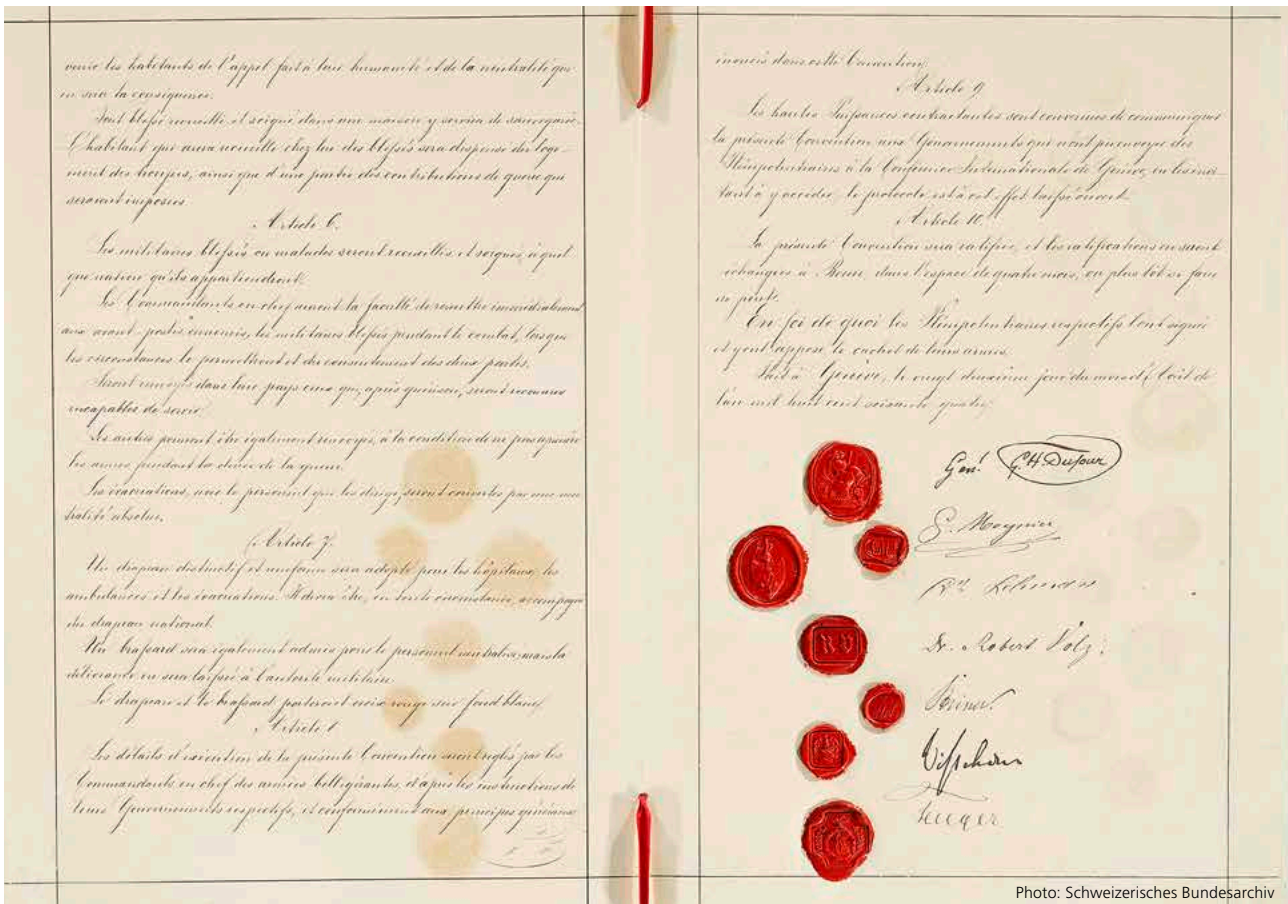 venir les habitants de l'appel fait à leur humanité et de la neutralité qui
en sera la conséquence.
Tout blessé recueilli et soigné dans une maison y servira de sauvegarde.
L'habitant qui aura recueilli chez lui des blessés sera dispensé du loge-
ment des troupes, ainsi que d'une partie des contributions de guerre qui
seraient imposées.
Article 6.
Les militaires blessés ou malades seront recueillis et soignés, à quel-
que nation qu'ils appartiendront.
Les Commandants en chef auront la faculté de remettre immédiatement
aux avant-postes ennemis, les militaires blessés pendant le combat, lorsque
les circonstances le permettront et du consentement des deux partis.
Seront renvoyés dans leur pays ceux qui, après guérison, seront reconnus
incapables de servir.
Les autres pourront être également renvoyés, à la condition de ne pas reprendre
les armes pendant la durée de la guerre.
Les évacuations, avec le personnel qui les dirige, seront couvertes par une neu-
tralité absolue.
Article 7.
Un drapeau distinctif et uniforme sera adopté pour les hôpitaux, les
ambulances et les évacuations. Il devra être, en toute circonstance, accompagné
du drapeau national.
Un brassard sera également admis pour le personnel neutralisé; mais la
délivrance en sera laissée à l'autorité militaire.
Le drapeau et le brassard porteront croix rouge sur fond blanc.
Article 8
Les détails d'exécution de la présente Convention seront réglés par les
Commandants en chef des armées belligérantes, d'après les instructions de
leurs Gouvernements respectifs, et conformément aux principes généraux
énoncés dans cette Convention.
Article 9
Les hautes Puissances contractantes sont convenues de communiquer
la présente Convention aux Gouvernements qui n'ont pu envoyer des
Plénipotentiaires à la Conférence Internationale de Genève, en les invi-
tant à y accéder; le protocole est à cet effet laissé ouvert.
Article 10.
La présente Convention sera ratifiée, et les ratifications en seront
échangées à Berne, dans l'espace de quatre mois, ou plus tôt si faire
se peut.
En foi de quoi les Plénipotentiaires respectifs l'ont signée
et y ont apposé le cachet de leurs armes.
Fait à Genève, le vingt deuxième jour du mois d'Août de
l'an mil huit cent soixante quatre.
Gén! G. H. Dufour
G. Moynier
Dr Lehmann
Dr. Robert Volz.
RV
Steiner.
Visschers
Photo: Schweizerisches Bundesarchiv